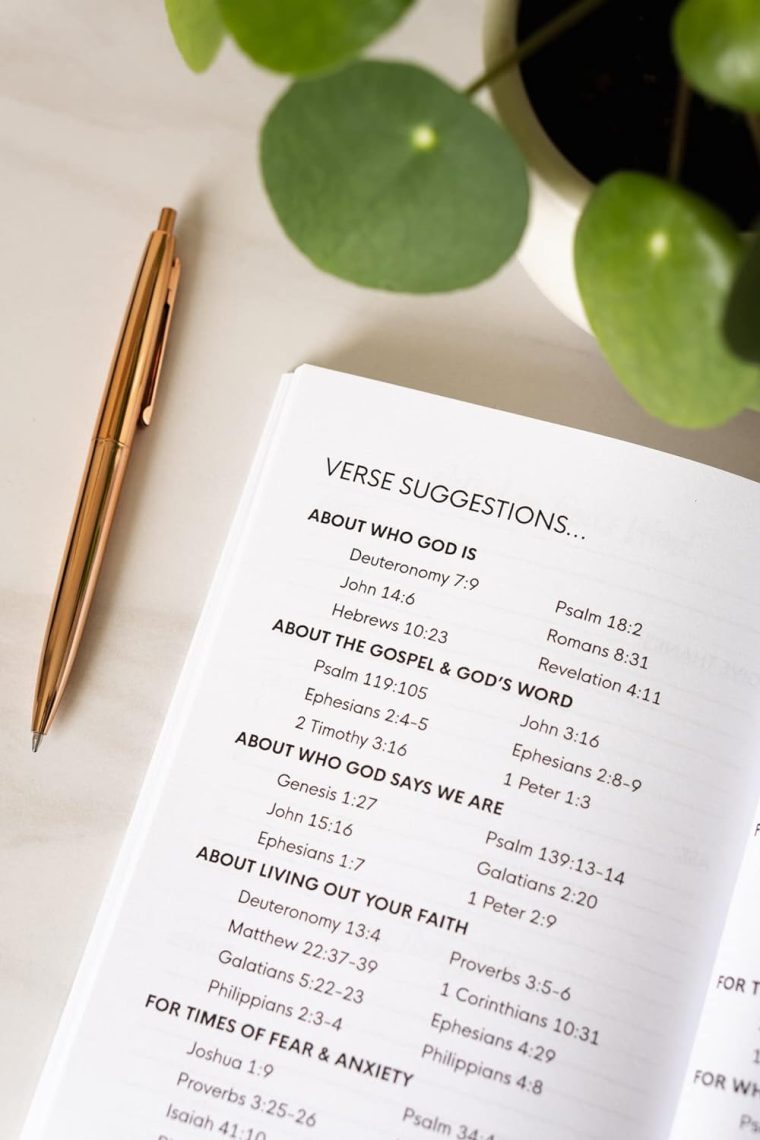 VERSE SUGGESTIONS...
ABOUT WHO GOD IS
Deuteronomy 7:9
John 14:6
Hebrews 10:23
Psalm 18:2
Romans 8:31
Revelation 4:11
ABOUT THE GOSPEL & GOD'S WORD
Psalm 119:105
Ephesians 2:4-5
2 Timothy 3:16
John 3:16
Ephesians 2:8-9
1 Peter 1:3
ABOUT WHO GOD SAYS WE ARE
Genesis 1:27
John 15:16
Ephesians 1:7
Psalm 139:13-14
Galatians 2:20
1 Peter 2:9
ABOUT LIVING OUT YOUR FAITH
Deuteronomy 13:4
Matthew 22:37-39
Galatians 5:22-23
Philippians 2:3-4
Proverbs 3:5-6
1 Corinthians 10:31
Ephesians 4:29
Philippians 4:8
FOR TIMES OF FEAR & ANXIETY
Joshua 1:9
Proverbs 3:25-26
Isaiah 41:10
Psalm 34:4
FOR
FOR